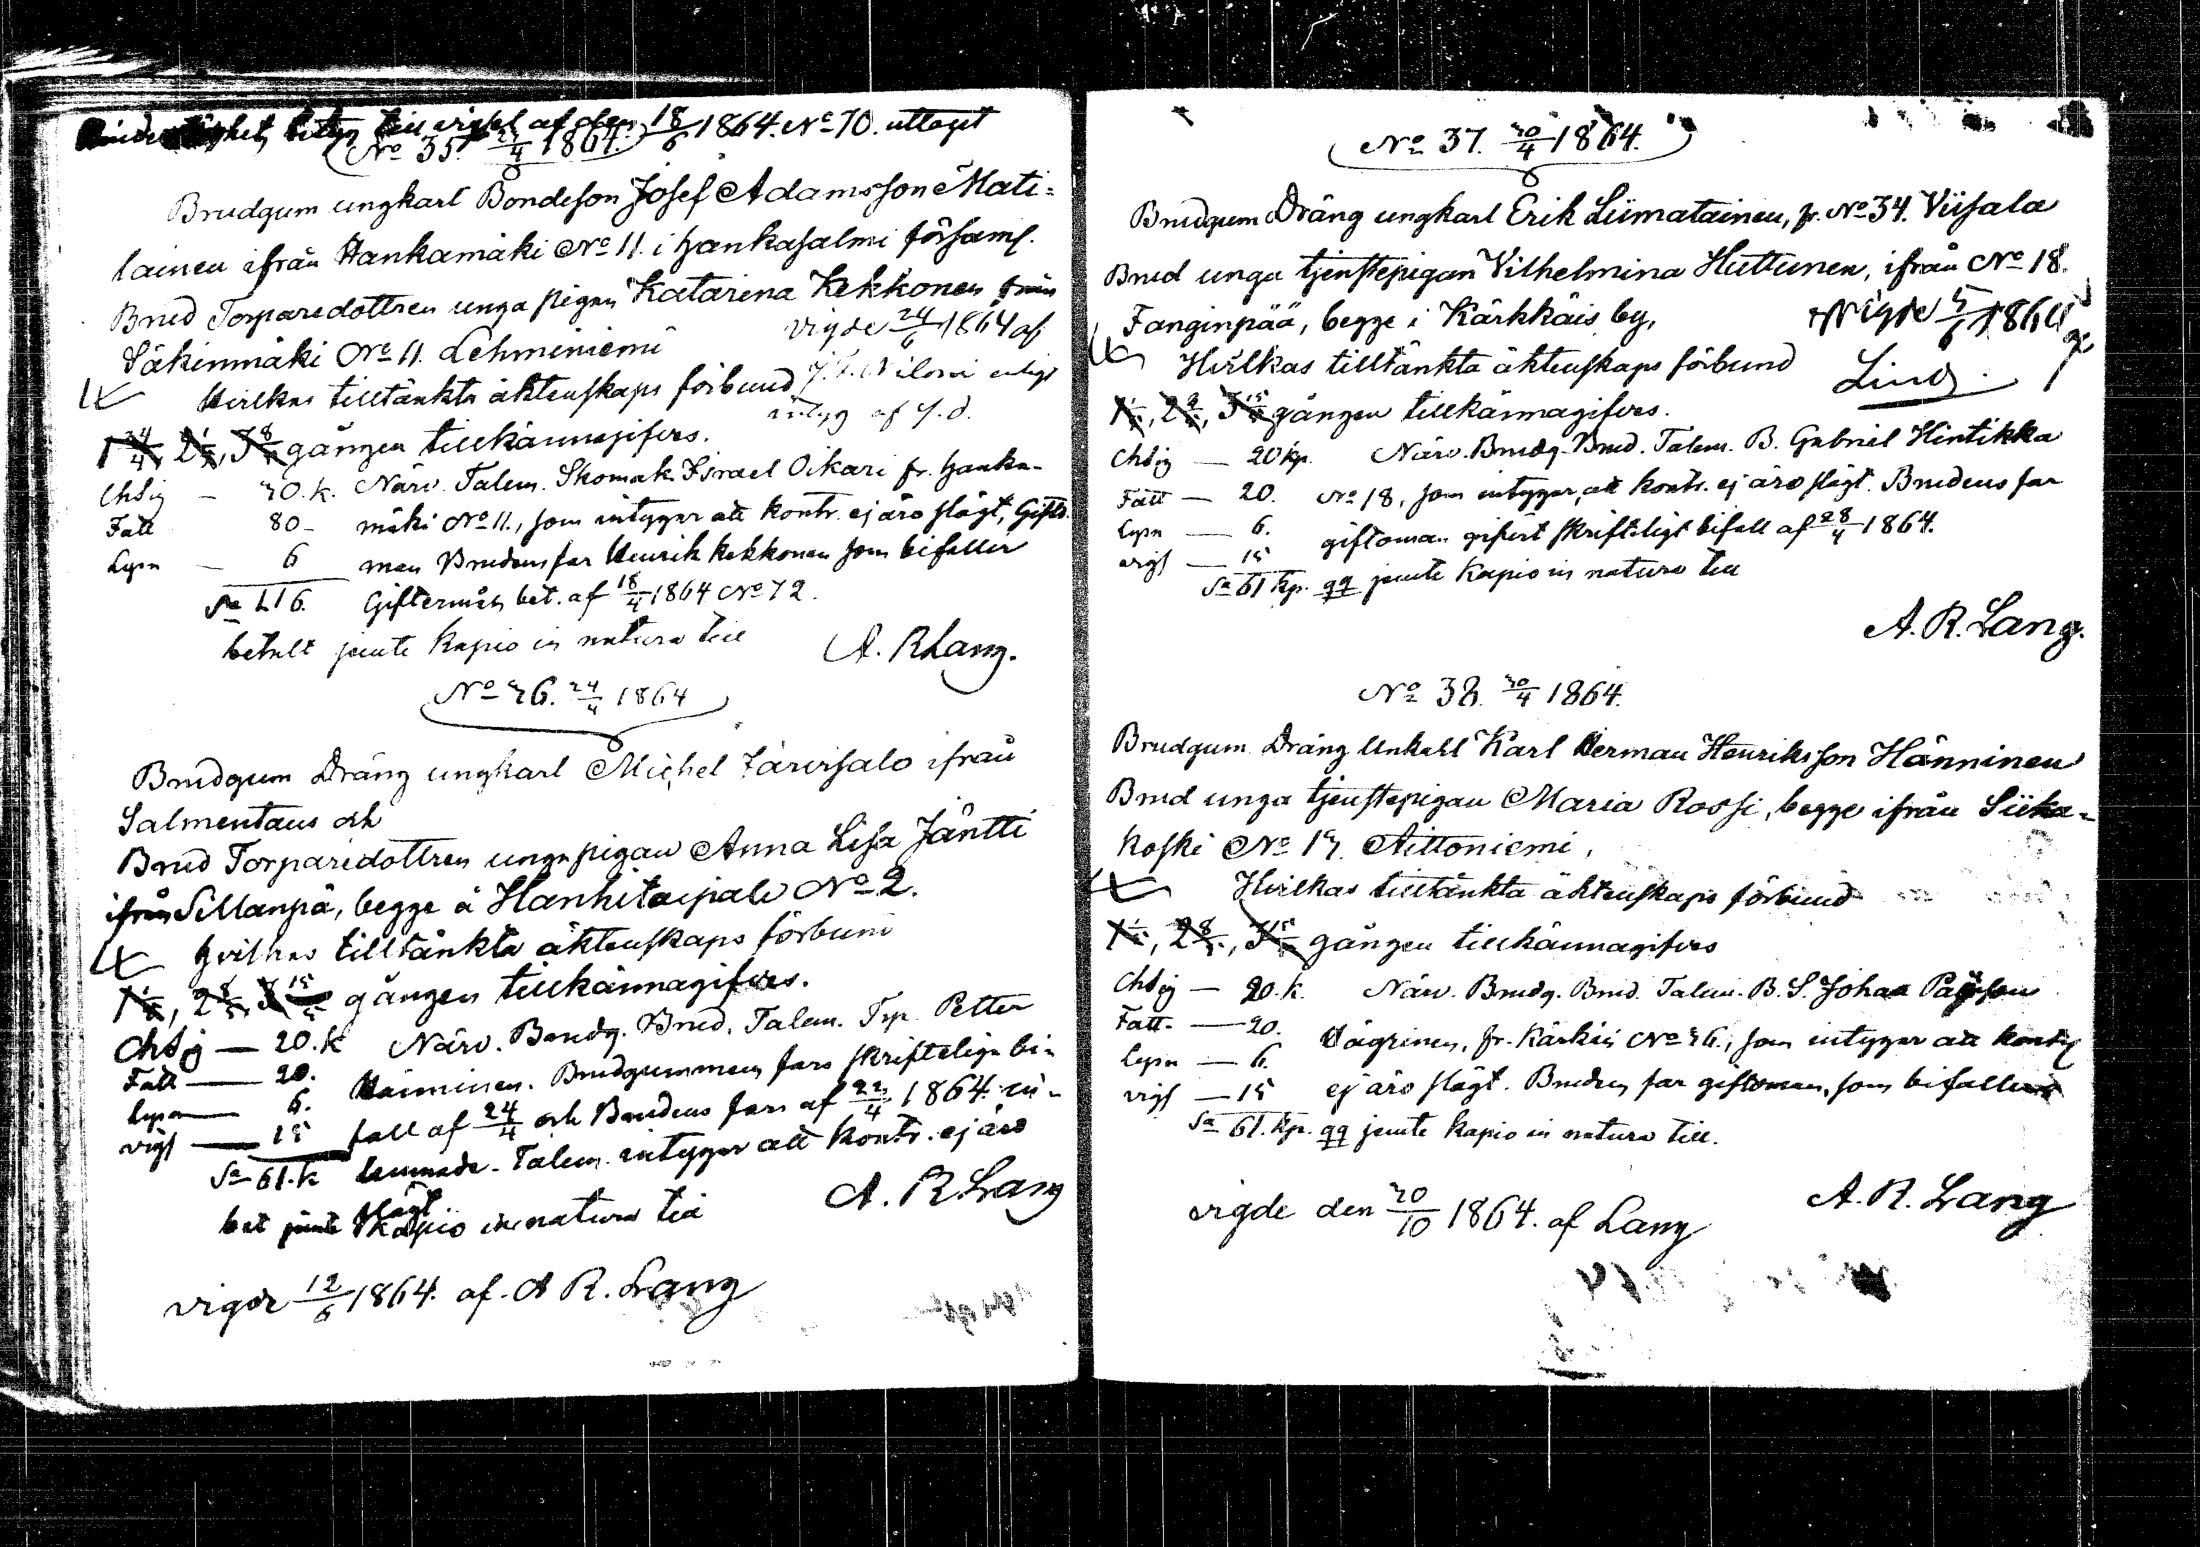 betyg till vigsel af den 18/6 1864. No 70. uttaget
No 35. 24/4 1864.
Brudgum ungkarl Bondeson Josef Adamsson Mati=
lainen ifrån Hankamäki No 11. i Hankasalmi församl.
Brud Torparedottren unga pigan Katarina Kekkonen från
Säkinmäki No 11. Lehminiemi
vigde 24/6 1864 af
Hvilkas tilltänkta äktenskaps förbund
enligt
intyg af s. d.
1 24/4, 2 1/5, 3 8/5 gången tillkännagifves.
Chdjg — 30. k. Närv. Talem. Skomak. Israel Oikari fr. Hanka-
Fatt 80 — mäki No 11., som intygar att kontr. ej äro slägt, Gifto-
Lysn — 6 man Brudens far Henrik Kekkonen som bifaller
Sa 116. Giftermåls bet. af 18/4 1864 No 72.
betalt jemte Kapio in natura till
A. R. Lang.
No 36. 24/4 1864
Brudgum Dräng ungkarl Michel Järvisalo ifrån
Salmentaus och
Brud Torparedottren unga pigan Anna Lisa Jäntti
ifrån Sillanpä, begge å Hanhitaipale No 2.
Hvilkas tilltänkta äktenskaps förbund
1 1/5, 2 8/5, 3 15/5 gången tillkännagifves.
Chdjg — 20. k Närv. Brudg. Brud. Talem. Trp. Petter
Fatt — 20. Häminen. Brudgummens fars skrifteliga bi-
Lysn — 6. fall af 24/4 och Brudens fars af 22/4 1864. in-
vigs — 15 lemnade. Talem. intygar att kontr. ej äro
Sa 61. k slägt
bet jemte Kapio in natura till
A. R. Lang
vigde 12/6 1864. af A R. Lang
No 37. 30/4 1864.
Brudgum Dräng ungkarl Erik Liimatainen, fr. No 34. Viisala
Brud unga tjenstepigan Vilhelmina Huttunen, ifrån No 18.
Fanginpää, begge i Kärkkäis by,
Vigde 5/6 1864
Hvilkas tilltänkta äktenskaps förbund
Lind.
1 1/5, 2 8/5, 3 15/5 gången tillkännagifves.
Chdjg — 20 kp. Närv. Brudg. Brud. Talem. B. Gabriel Hintikka
Fatt — 20. No 18, som intygar, att kontr. ej äro slägt. Brudens far
Lysn — 6. giftoman gifvit skrifteligt bifall af 28/4 1864.
vigs — 15
Sa 61 kp. qq jemte Kapio in natura till
A. R. Lang.
No 38. 30/4 1864.
Brudgum Dräng Unkarl Karl Herman Henriksson Hänninen
Brud unga tjenstepigan Maria Rossi, begge ifrån Siika-
koski No 13. Aittoniemi,
Hvilkas tilltänkta äktenskaps förbund
1 1/5, 2 8/5, 3 15/5 gången tillkännagifves
Chdjg — 20. k. Närv. Brudg. Brud. Talem. B. S. Johan
Fatt. — 20. fr. Kärkäis No 36., som intygar att kontr.
Lysn — 6. ej äro slägt. Brudens far giftoman, som bifaller
vigs — 15
Sa 61. kp. qq jemte Kapio in natura till.
A. R. Lang
vigde den 30/10 1864. af Lang